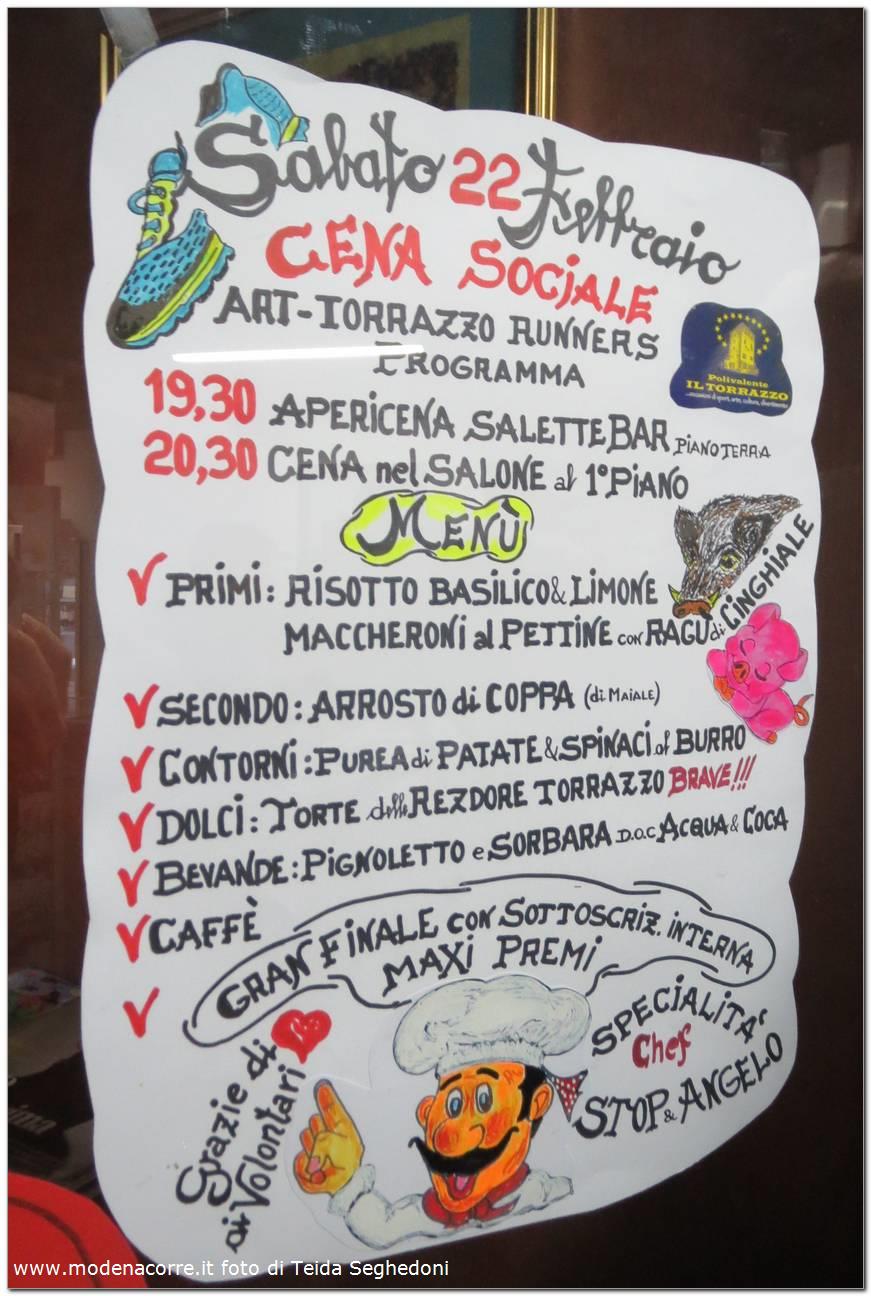 Sabato 22 Febbraio
CENA SOCIALE
ART-TORRAZZO RUNNERS
PROGRAMMA
Polivalente
IL TORRAZZO
19,30 APERICENA SALETTE BAR PIANO TERRA
20,30 CENA nel SALONE al 1° PIANO
MENÙ
V PRIMI: RISOTTO BASILICO & LIMONE
MACCHERONI al PETTINE con RAGÙ di CINGHIALE
V SECONDO: ARROSTO di COPPA (di MAIALE)
V CONTORNI: PUREA di PATATE & SPINACI al BURRO
V DOLCI: TORTE delle REZDORE TORRAZZO BRAVE!!!
V BEVANDE: PIGNOLETTO e SORBARA D.O.C ACQUA & COCA
V CAFFÈ
V GRAN FINALE con SOTTOSCRIZ. INTERNA
MAXI PREMI
SPECIALITA'
Chef
STOP & ANGELO
Grazie di
ai Volontari
www.modenacorre.it foto di Teida Seghedoni